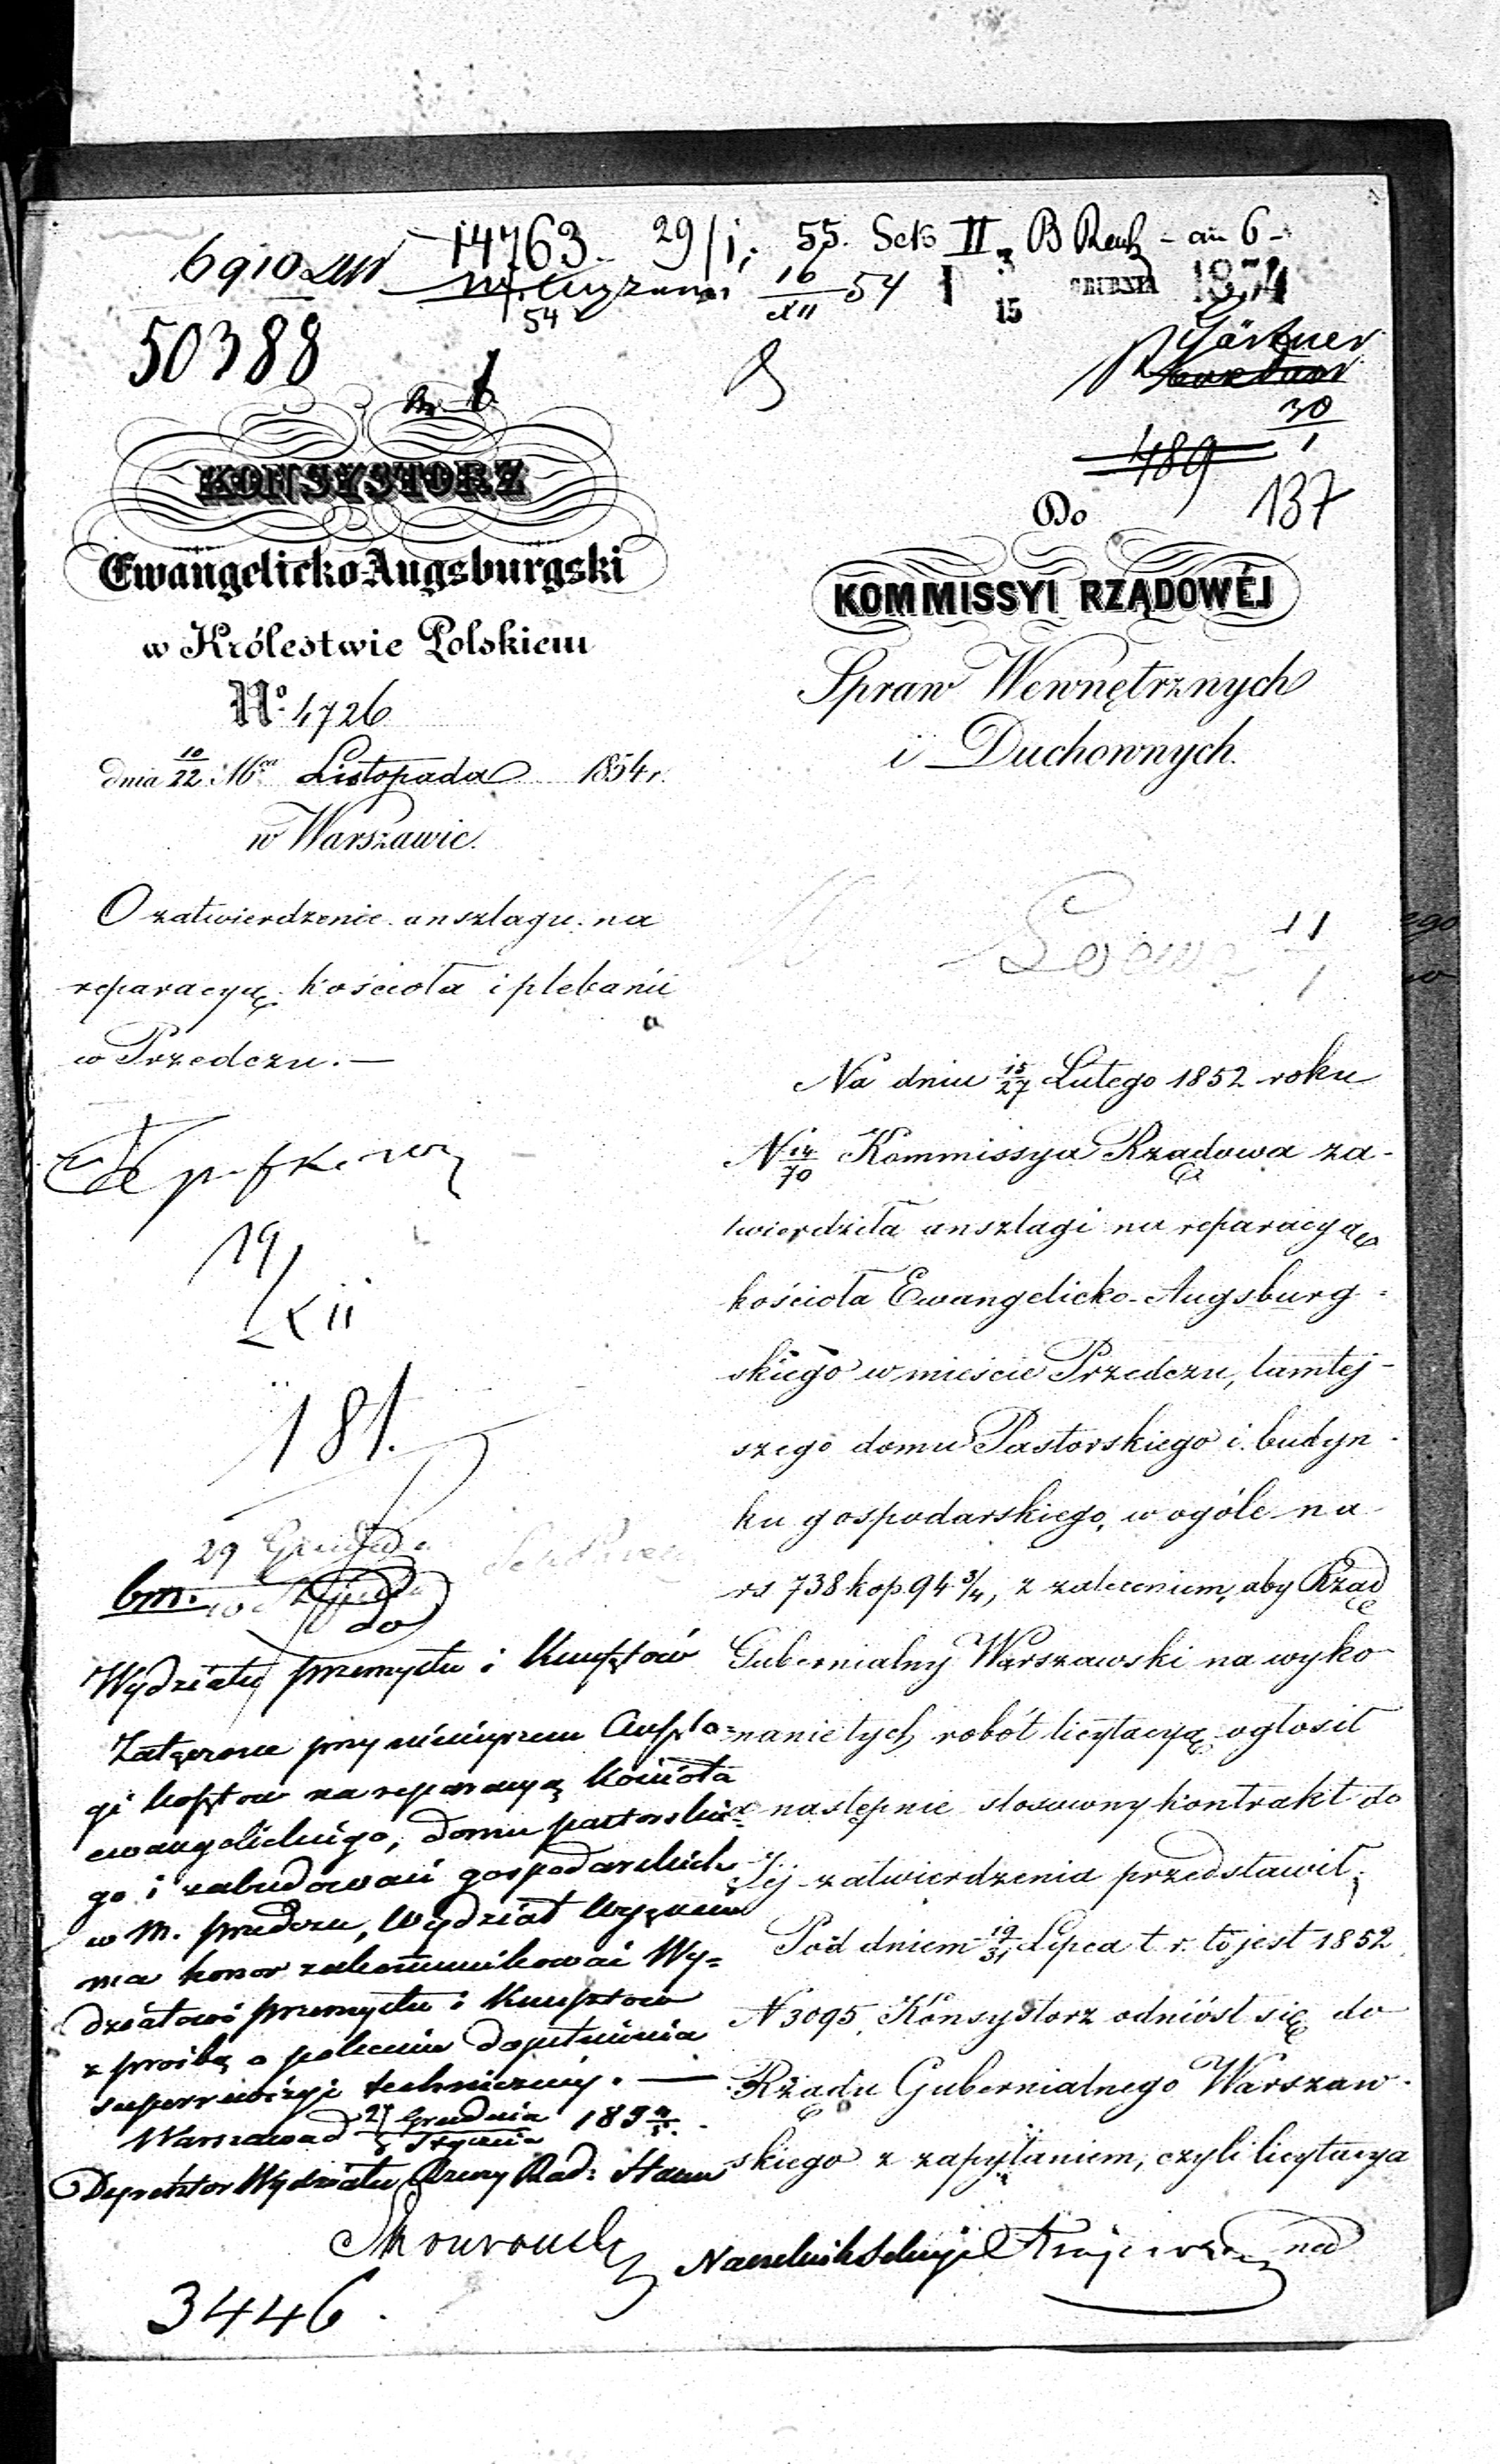 14763. 29/I. 55. Sek II
6910
16/XII 54
54
15 GRUDNIA 1854
50388
Gärtner
30/1
489
137
KONSYSTORZ
Ewangelicko-Augsburgski
w Królestwie Polskiem
No. 4726
dnia 10/22 Mca Listopada 1854 r.
w Warszawie.
O zatwierdzenie anszlagu na
reparacyą kościoła i plebanii
w Przedczu.—
19/XII
181.
29 Grudnia
bm.
do
Wydziału przemysłu i Kunsztów
Załączone przy niniejszem Anszla=
gi kosztów na reparacyą kościoła
ewangelickiego, domu pastorskie=
go i zabudowań gospodarskich
w M. Przedczu, Wydział Wyznań
ma honor zakommunikować Wy=
działowi przemysłu i Kunsztów
z prośbą o polecenie dopełnienia
superrewizyi technicznéj.—
Warszawa d 27 Grudnia / 8 Stycznia 1854/5.
Dyrektor Wydziału Rzeczy: Rad: Stanu
3446.
Do
KOMMISSYI RZĄDOWÉJ
Spraw Wewnętrznych
i Duchownych.
Na dniu 15/27 Lutego 1852 roku
N 14/70 Kommissya Rządowa za-
twierdziła anszlagi na reparacyą
kościoła Ewangelicko-Augsburg-
skiego w mieście Przedczu, tamtej-
szego domu Pastorskiego i budyn-
ku gospodarskiego, w ogóle na
rs 738 kop. 94 3/4, z zaleceniem, aby Rząd
Gubernialny Warszawski na wyko-
nanie tych robót licytacyą ogłosił
a następnie stosowny kontrakt do
Jéj zatwierdzenia przedstawił.
Pod dniem 19/31 Lipca t. r. to jest 1852
N 3095, Konsystorz odniósł się do
Rządu Gubernialnego Warszaw-
skiego z zapytaniem, czyli licytacya
na
Naczelnik Sekcyi